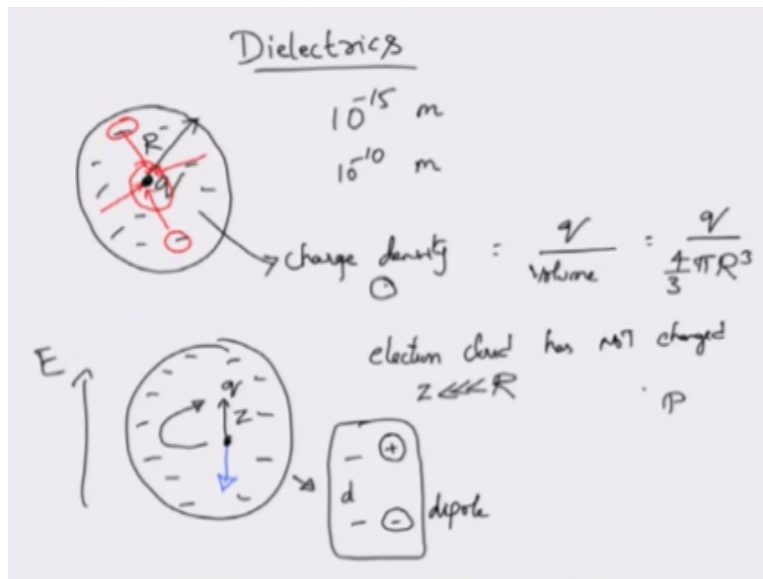 Dielectrics
10^-15 m
10^-10 m
R
q
charge density = q / volume = q / 4/3 πR³
electron cloud has not changed
z <<< R
P
E
q
z
+
d
-
dipole